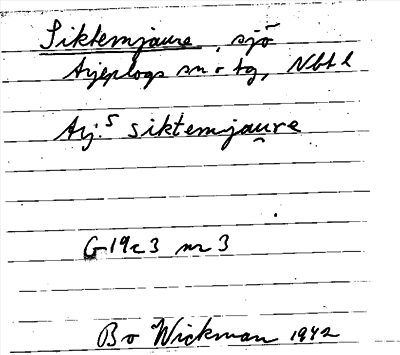 Siktemjaure, sjö
Arjeplogs sn o tg, Nbtl
Arj.S siktemjau̯re
G19c3 nr 3
Bo Wickman 1942